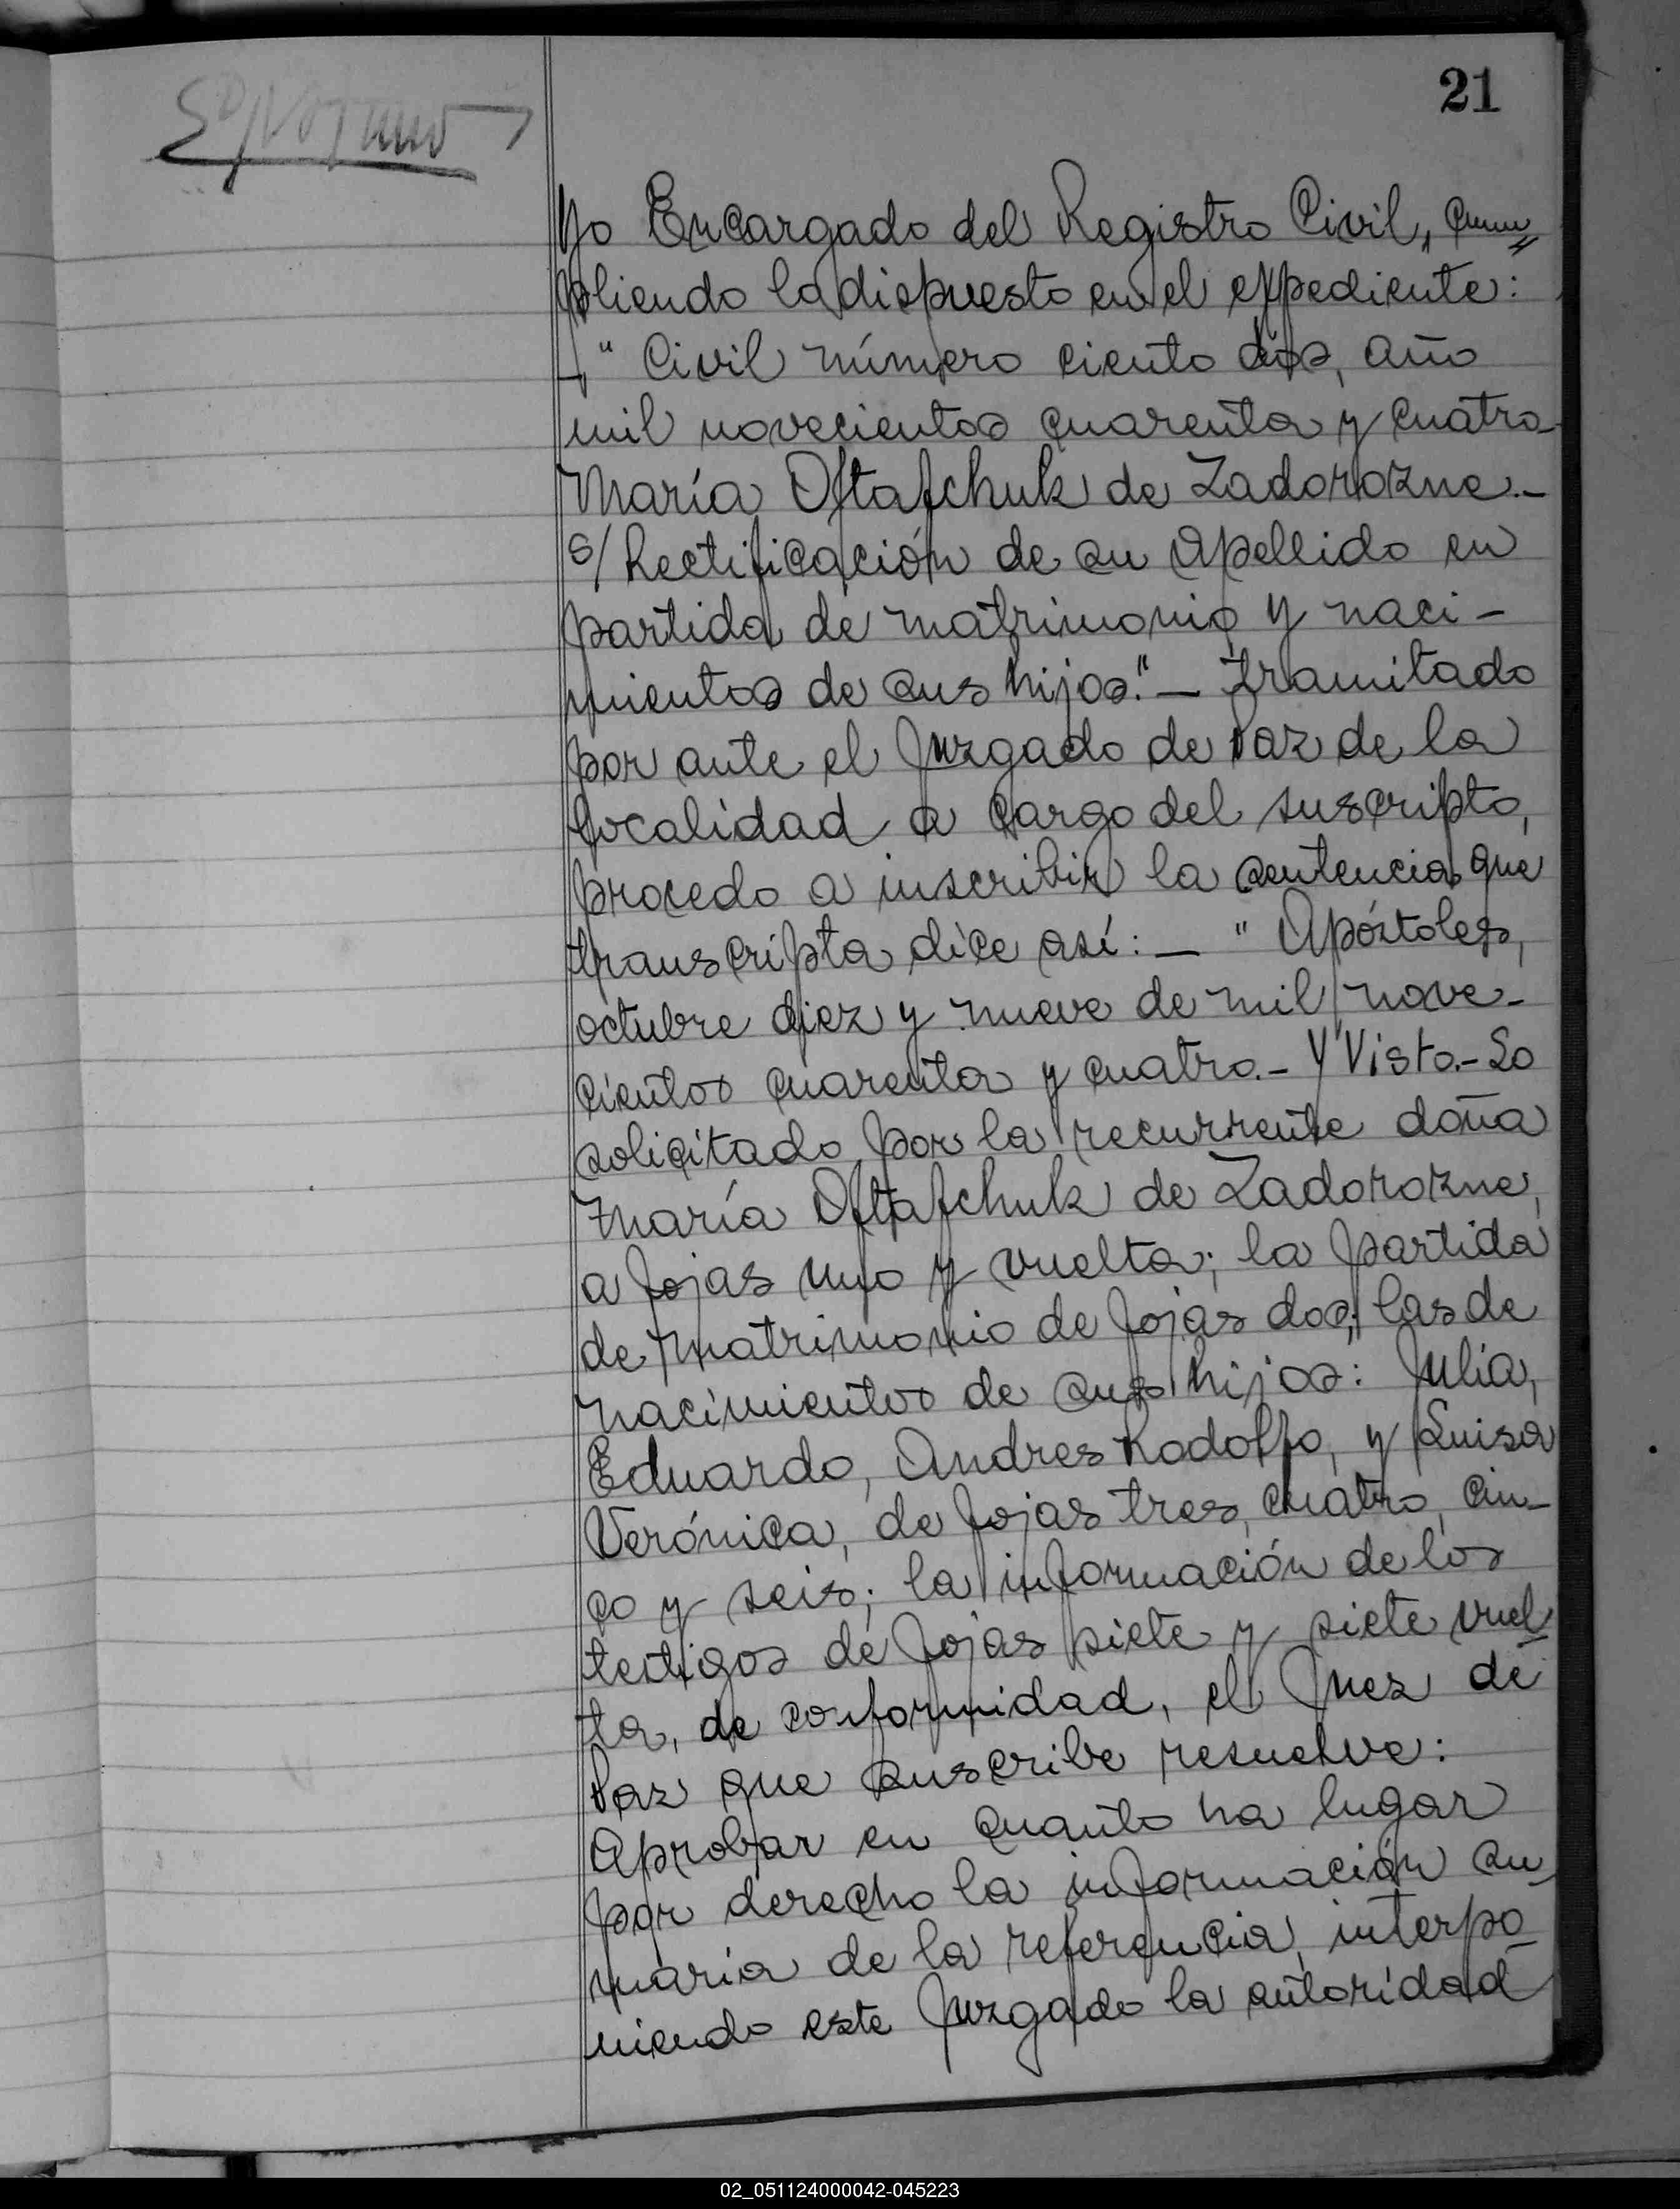 21
Yo Encargado del Registro Civil, cum
pliendo lo dispuesto en el expediente:
-" Civil número ciento dos, año
mil novecientos cuarenta y cuatro-
María Ostafchuk de Zadorozne.-
s/ Rectificación de su apellido en
partida de matrimonio y naci-
mientos de sus hijos."- tramitado
por ante el Juzgado de Paz de la
localidad a cargo del suscripto,
procedo a inscribir la sentencia que
transcripta dice así:- " Apóstoles,
octubre diez y nueve de mil nove-
cientos cuarenta y cuatro.- Y Visto.- Lo
solicitado por la recurrente doña
María Ostafchuk de Zadorozne,
a fojas uno y vuelta; la partida
de matrimonio de fojas dos; las de
nacimientos de sus hijos: Julia,
Eduardo, Andres Rodolfo, y Luisa
Verónica, de fojas tres, cuatro, cin-
co y seis; la información de los
testigos de fojas siete y siete vuel
ta, de conformidad, el Juez de
Paz que suscribe resuelve:
Aprobar en cuanto ha lugar
por derecho la información su
maria de la referencia, interpo
niendo este Juzgado la autoridad
02_051124000042-045223